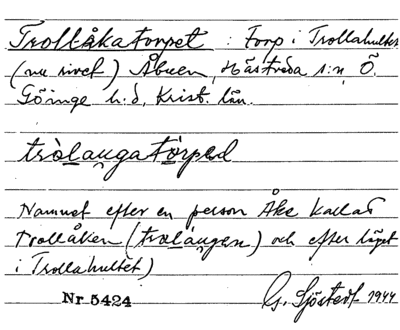 Trollåkatorpet : Torp i Trollahultet
(nu rivet) Åbuen, Hästveda s:n, Ö.
Göinge h:d, Krist. län.
Namnet efter en person Åke kallad
Trollåken ( ) och efter läget
i Trollahultet)
Nr 5424 G. Sjöstedt 1944